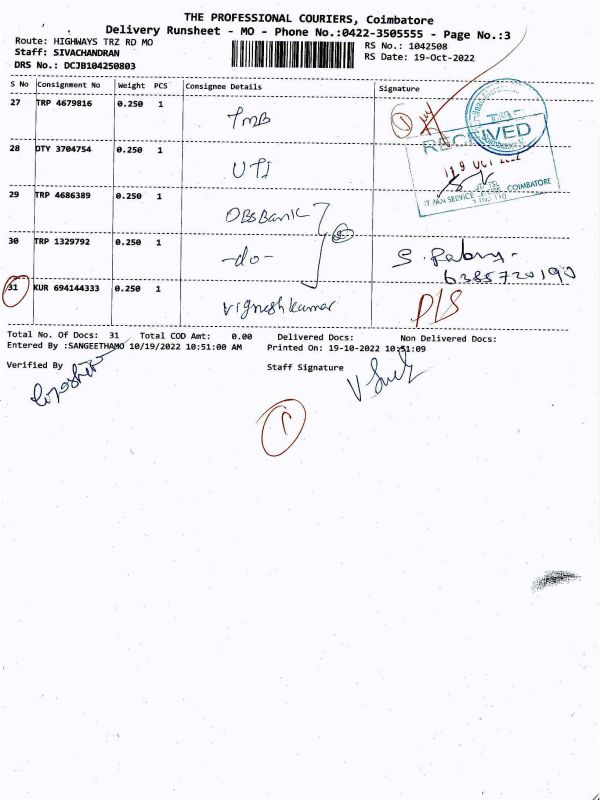 THE PROFESSIONAL COURIERS, Coimbatore
Delivery Runsheet - MO - Phone No.:0422-3505555 - Page No.:3
Route: HIGHWAYS TRZ RD MO
RS No.: 1042508
Staff: SIVACHANDRAN
RS Date: 19-Oct-2022
DRS No.: DCJB104250803
S No Consignment No Weight PCS Consignee Details Signature
27 TRP 4679816 0.250 1 TMB
RECEIVED
28 OTY 3704754 0.250 1 UTI
19 OCT 2022
IT PAN SERVICE COIMBATORE
29 TRP 4686389 0.250 1 DBS Bank
30 TRP 1329792 0.250 1 -do- 2
6385720190
31 KUR 694144333 0.250 1 Vignesh kumar
Total No. Of Docs: 31 Total COD Amt: 0.00 Delivered Docs: Non Delivered Docs:
Entered By :SANGEETHAMO 10/19/2022 10:51:00 AM Printed On: 19-10-2022 10:51:09
Verified By
Staff Signature